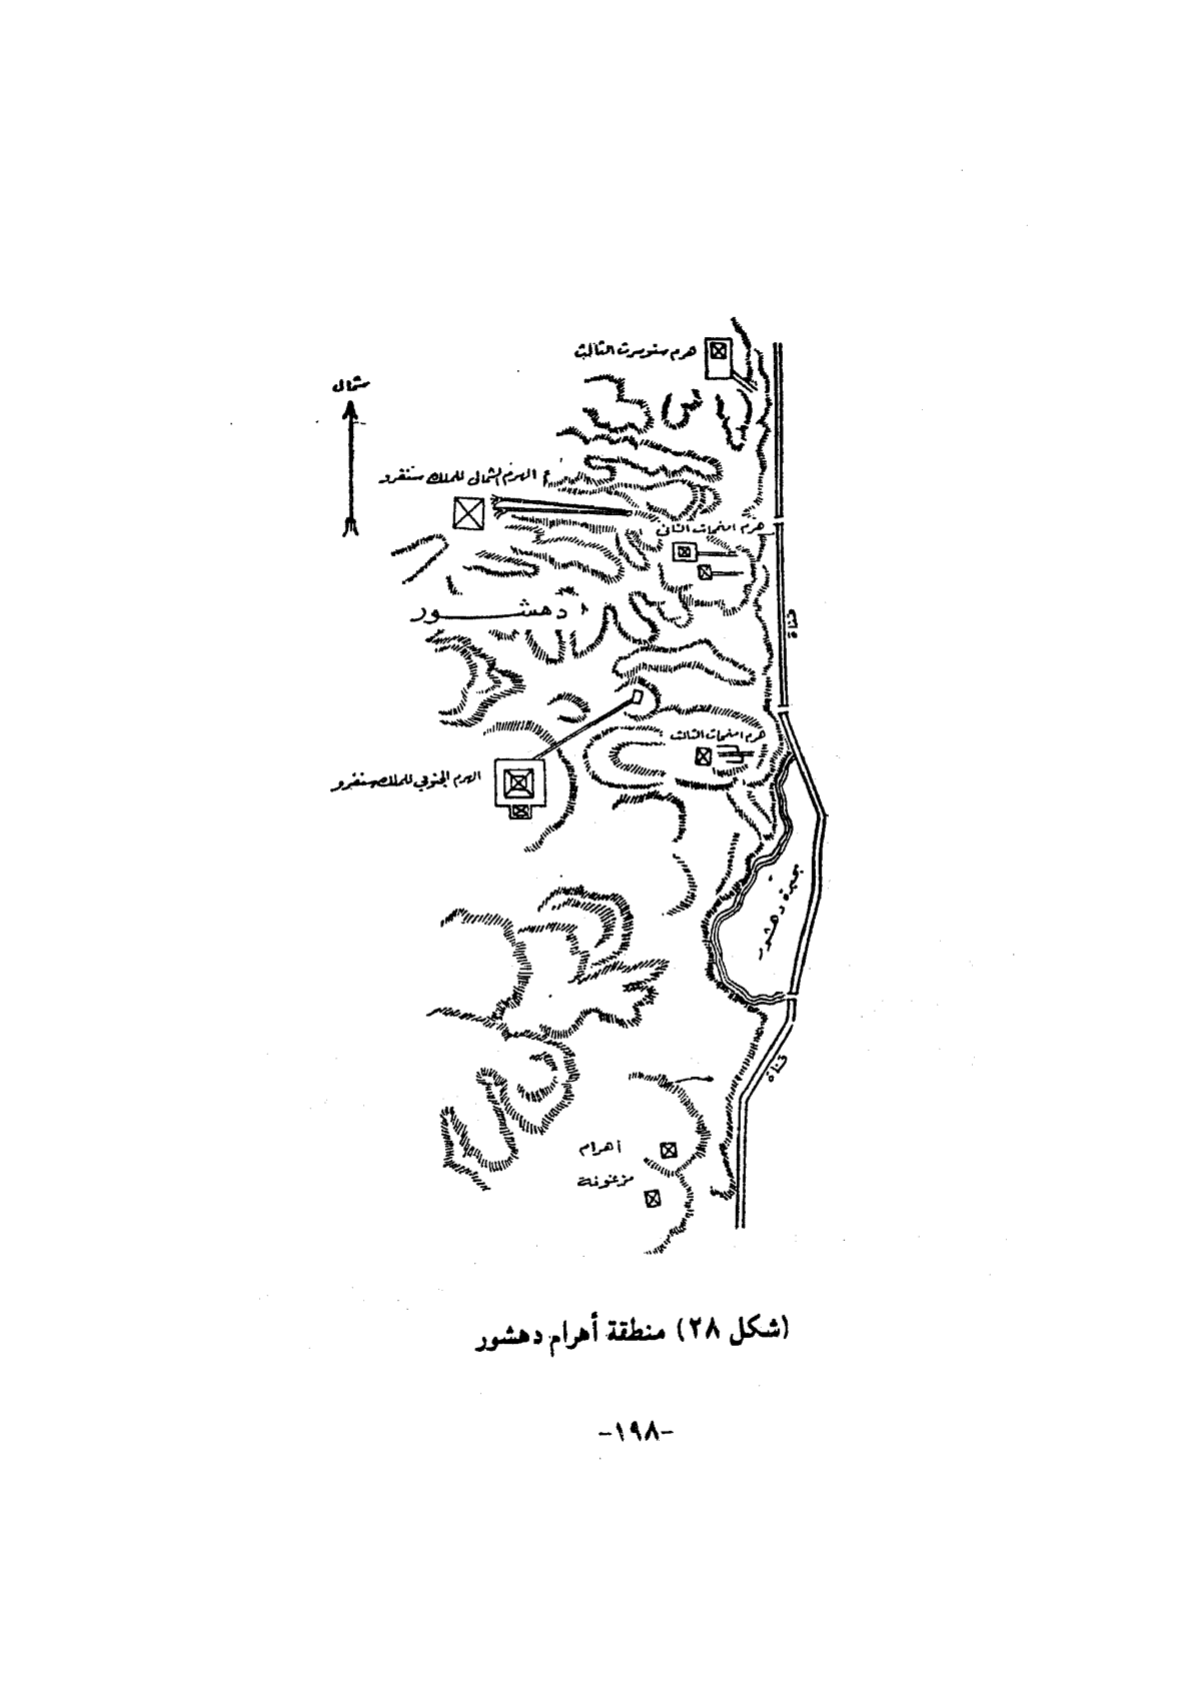 هرم سنوسرت الثالث
شمال
الهرم الشمالى للملك سنفرو
هرم امنمحات الثانى
دهشور
قناة
هرم امنمحات الثالث
الهرم الجنوبي للملك سنفرو
بحيرة دهشور
قناة
اهرام
مزغونة
(شكل ٢٨) منطقة أهرام دهشور
-١٩٨-